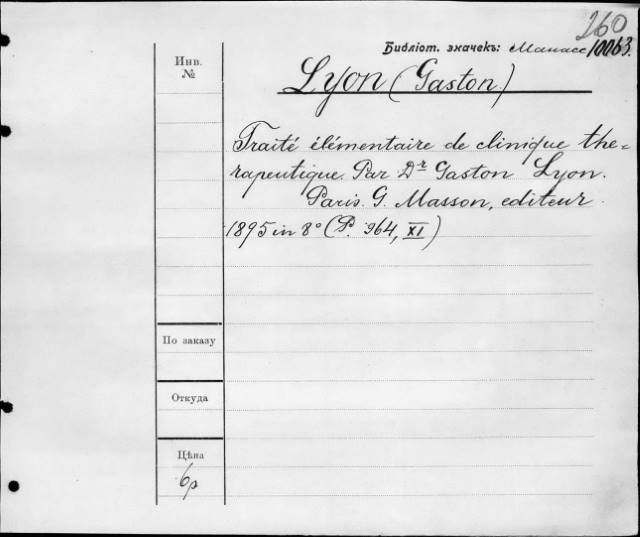 260
Библіот. значекъ: Манасс 10063.
Инв.
№
Lyon (Gaston)
Traité élémentaire de clinique the=
rapeutique. Par Dr Gaston Lyon.
Paris. G. Masson, editeur.
1895 in 8° (P. 964, XI)
По заказу
Откуда
Цѣна
6р